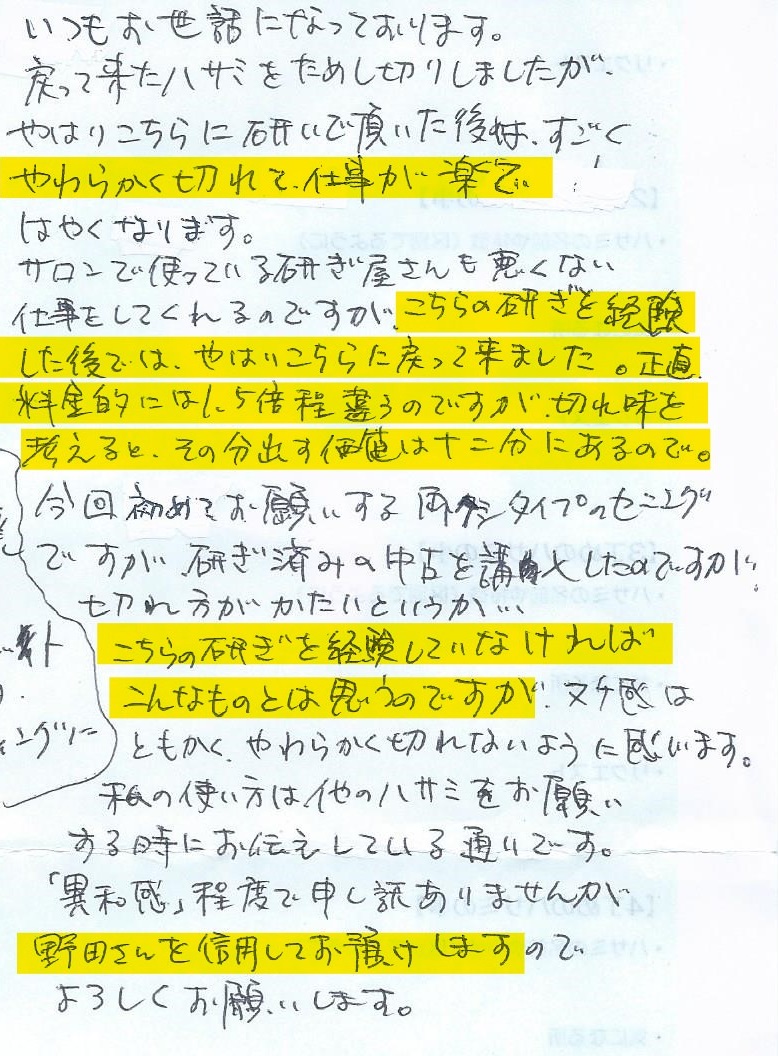 いつもお世話になっております。
戻って来たハサミをためし切りしましたが、
やはりこちらに研いで頂いた後は、すごく
やわらかく切れて、仕事が楽で
はやくなります。
サロンで使っている研ぎ屋さんも悪くない
仕事をしてくれるのですが、こちらの研ぎを経験
した後では、やはりこちらに戻って来ました。正直
料金的には1.5倍程違うのですが、切れ味を
考えると、その分出す価値は十二分にあるので。
今回初めてお願いする両タイプのセニング
ですが、研ぎ済みの中古を購入したのですが、
切れ方がかたいというか…
こちらの研ぎを経験していなければ
こんなものとは思うのですが、ヌケ感は
ともかく、やわらかく切れないように感います。
私の使い方は他のハサミをお願い
する時にお伝えしている通りです。
「異和感」程度で申し訳ありませんが
野田さんを信用してお預けしますので
よろしくお願いします。